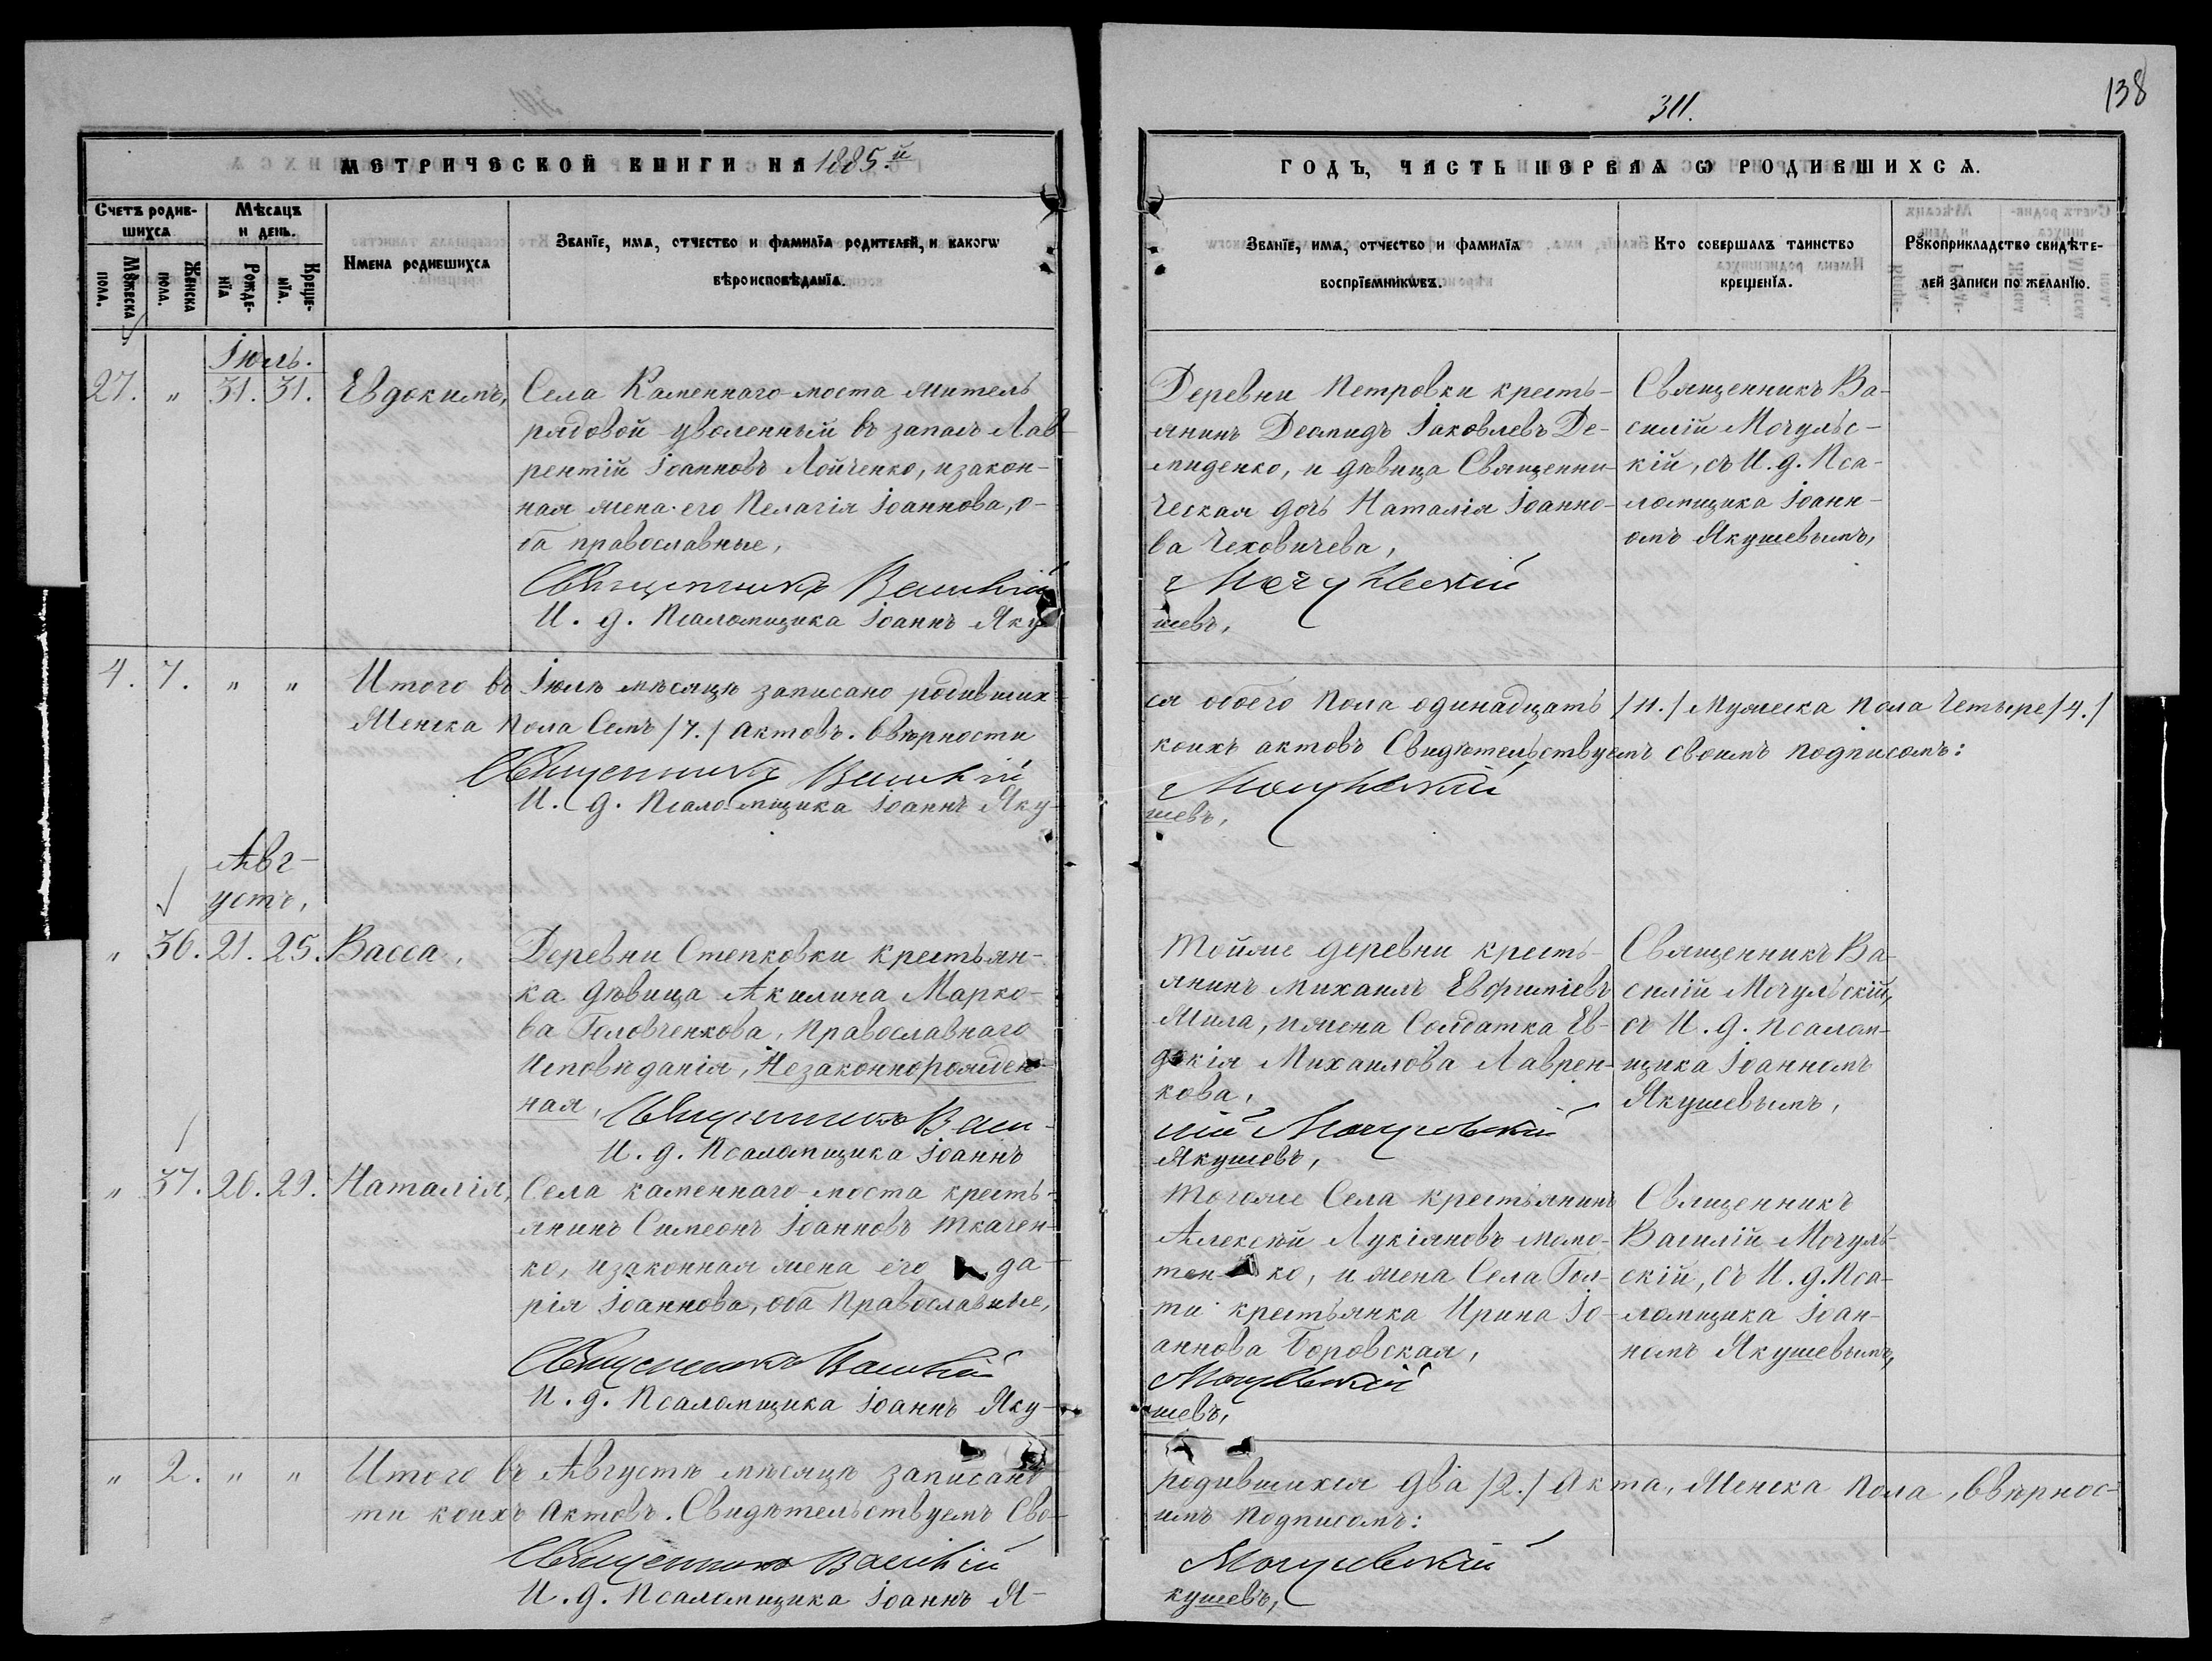 311.
138
МЕТРИЧЕСКОЙ КНИГИ НА 1885й
ГОДЪ, ЧАСТЬ ПЕРВАѦ Ѡ РОДИВШИХСѦ.
Счетъ родив-
шихсѧ
Мѣсѧцъ
и день.
Мꙋжеска
пола.
Женска
пола.
Рожде-
нїѧ
Креще-
нїѧ.
Имена родившихсѧ
Званїе, имѧ, отчество и фамилїѧ родителей, и какогѡ
вѣроисповѣданїѧ.
Званїе, имѧ, отчество и фамилїѧ
воспрїемникѡвъ.
Кто совершалъ таинство
крещенїѧ.
Рꙋкоприкладство свидѣте-
лей записи по желанїю.
Іюль.
27. " 31. 31. Евдокимъ,
Села Каменнаго-моста житель
рядовой уволенный въ запасъ Лав-
рентій Іоанновъ Лойченко, изакон-
ная жена его Пелагія Іоаннова, о-
ба православные,
Священникъ Василій
И. д. Псаломщика Іоаннъ Яку-
Деревни Петровки кресть-
янинъ Деомидъ Іаковлевъ Де-
миденко, и дѣвица Священни-
ческая дочь Наталія Іоанно-
ва Чеховичева,
Мочульскій
шевъ,
Священникъ Ва-
силій Мочульс-
кій, съ И. д. Пса-
ломщика Іоанн-
омъ Якушевымъ,
4. 7. " " Итого въ Іюлѣ мѣсяцѣ записано родивших-
Женска Пола Семь /7./ Актовъ. Ввѣрности
Священникъ Василій
И. д. Псаломщика Іоаннъ Яку-
ся обоего Пола одинадцать /11./ Мужеска Пола Четыре /4./
коихъ актовъ Свидѣтельствуемъ своимъ подписомъ:
Мочульскій
шевъ,
Авг-
устъ,
" 36. 21. 25. Васса,
Деревни Степковки крестьян-
ка дѣвица Акилина Марко-
ва Головченкова, Православнаго
Исповѣданія, Незаконнорожден-
ная,
Священникъ Васи-
И. д. Псаломщика Іоаннъ
Тойже деревни кресть-
янинъ Михаилъ Евфиміевъ
Мила, ижена Солдатка Ев-
докія Михаилова Лаврен-
кова,
лій Мочульскій
Якушевъ,
Священникъ Ва-
силій Мочульскій,
съ И. д. Псалом-
щика Іоанномъ
Якушевымъ,
" 37. 26. 29. Наталія,
Села каменнаго-моста кресть-
янинъ Симеонъ Іоанновъ Ткачен-
ко, изаконная жена его да-
рія Іоаннова, оба Православные,
Священникъ Василій
И. д. Псаломщика Іоаннъ Яку-
Тогоже Села крестьянинъ
Алексѣй Лукіяновъ
ко, и жена Села Гол-
ти крестьянка Ирина Іо-
аннова Боровская,
Мочульскій
шевъ,
Священникъ
Василій Мочуль-
скій, съ И. д. Пса-
ломщика Іоан-
номъ Якушевымъ,
" 2. " " Итого въ Августѣ мѣсяцѣ записано
ти коихъ Актовъ. Свидѣтельствуемъ Сво-
Священникъ Василій
И. д. Псаломщика Іоаннъ Я-
родившихся два /2./ Акта, Женска Пола, Ввѣрнос-
имъ подписомъ:
Мочульскій
кушевъ,